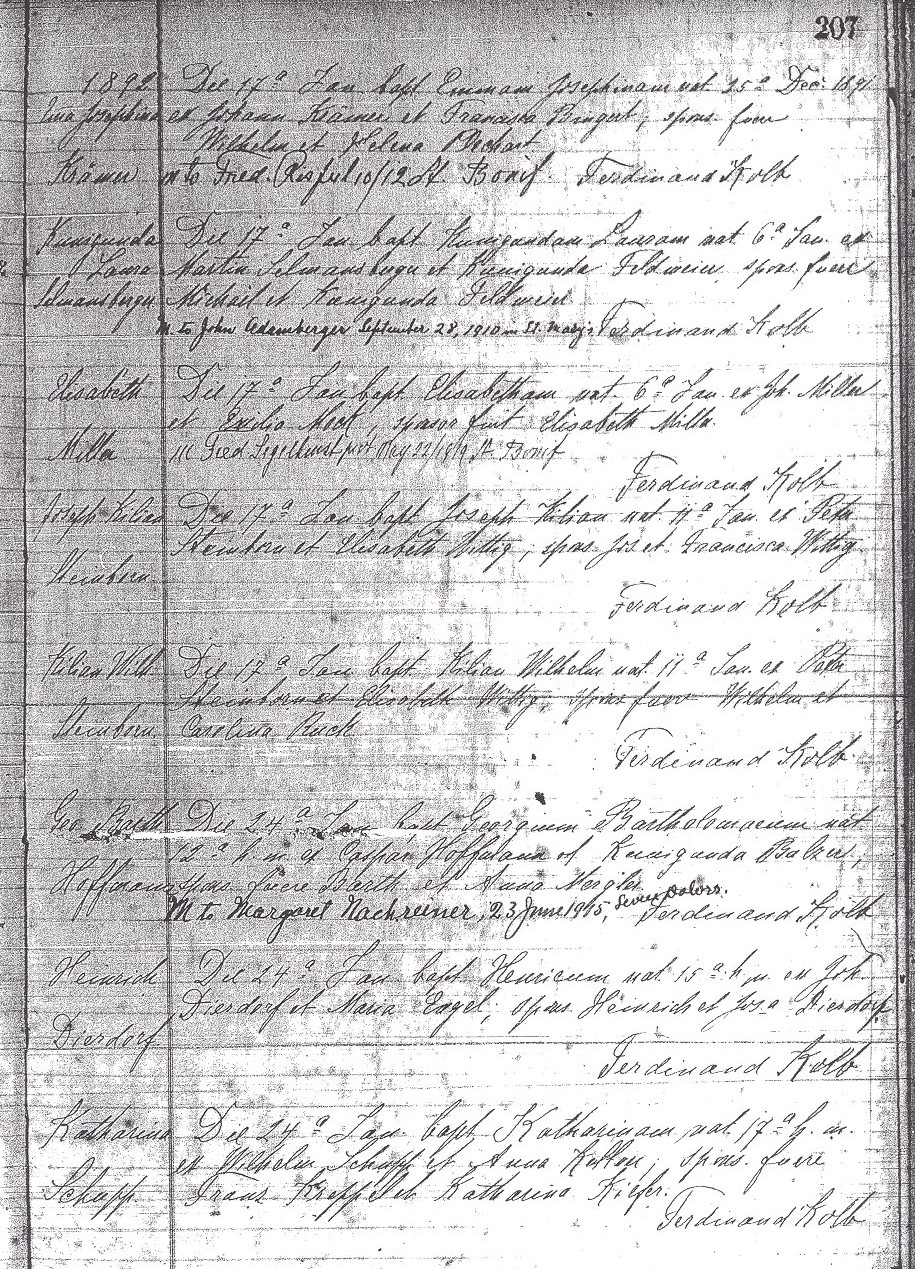 207
1892 Die 17ª Jan bapt Emmam Josephinam nat 25ª Dec. 1891
Ema Josephina ex Johann Krämer et Francisca Bingert, spons. fuere
Wilhelm et Helena
Krämer m to Fred. 10/12 St Bonif. Ferdinand Kolb
Kunigunda Die 17ª Jan bapt Kunigundam Lauram nat 6ª Jan. ex
Laura Martin Selmansberger et Kunigunda Feldmeier spons. fuere
Selmansberger Michael et Kunigunda Feldmeier
M. to John Adamberger September 28, 1910 in St. Mary's Ferdinand Kolb
Elisabeth Die 17ª Jan bapt Elisabetham nat 6ª Jan ex Joh. Miller
et, sponsor fuit Elisabeth Miller
Miller m Fred May 22/1919 St Bonif
Ferdinand Kolb
Joseph Kilian Die 17ª Jan bapt Joseph Kilian nat 11ª Jan. ex Peter
Steinborn et Elisabeth Wittig, spons. Jos et Francisca Wittig
Steinborn
Ferdinand Kolb
Kilian Wilh. Die 17ª Jan bapt Kilian Wilhelm nat. 11ª Jan. ex Peter
Steinborn et Elisabeth Wittig, spons fuere Wilhelm et
Steinborn Carolina Ruck
Ferdinand Kolb
Geo. Barth Die 24ª Jan bapt Georgium Bartholomaeum nat
12ª h. m. ex Caspar Hoffmann et Kunigunda Balzer,
Hoffmann spons. fuere Barth. et Anna
M to Margaret Nachreiner, 23 June 1915, Seven Dolors. Ferdinand Kolb
Heinrich Die 24ª Jan bapt Henricum nat 15ª h. m. ex Joh
Dierdorf et Maria Engel, spons. Heinrich et Josa Dierdorf
Dierdorf
Ferdinand Kolb
Katharina Die 24ª Jan bapt Katharinam nat. 17ª h. m.
ex Wilhelm Schupp et Anna, spons. fuere
Schupp Franz Kreppel et Katharina Kiefer.
Ferdinand Kolb